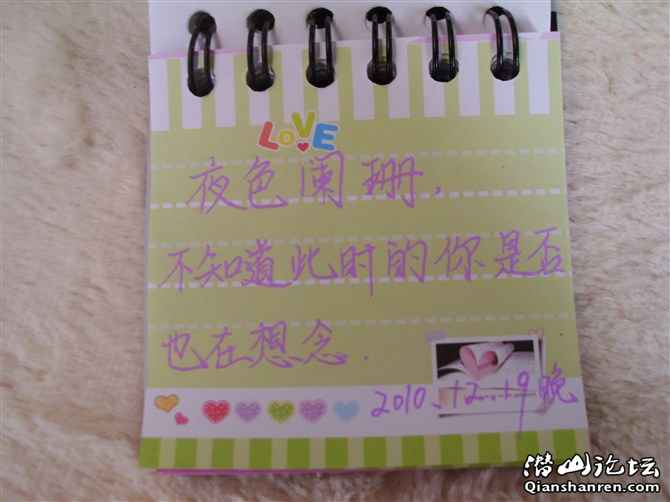 LOVE
夜色阑珊,
不知道此时的你是否
也在想念.
2010.12.19晚
潜山论坛
Qianshanren.com